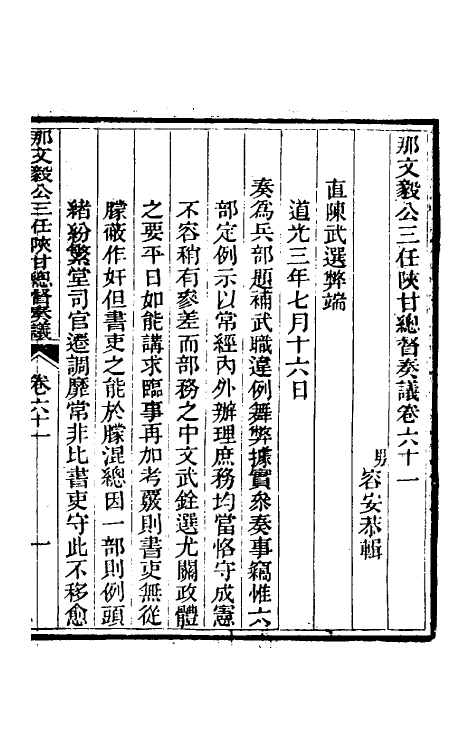 那文毅公三任陝甘總督奏議卷六十一
男容安恭輯
直陳武選弊端
道光三年七月十六日
奏爲兵部題補武職違例舞弊據實叅奏事竊惟六
部定例示以常經內外辦理庶務均當恪守成憲
不容稍有參差而部務之中文武銓選尤關政體
之要平日如能講求臨事再加考覈則書吏無從
朦蔽作奸但書吏之能於朦混總因一部則例頭
緒紛繁堂司官遷調靡常非比書吏守此不移愈
那文毅公三任陝甘總督奏議 卷六十一 一